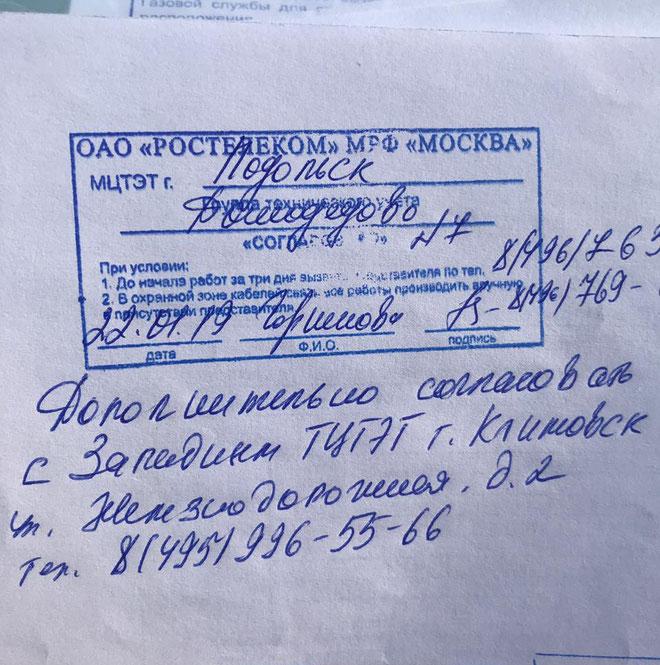 газовой службы для
расположения
ОАО «РОСТЕЛЕКОМ» МРФ «МОСКВА»
МЦТЭТ г. Подольск
Группа технического учета
Домодедово
«СОГЛАСОВАНО» N7
При условии: 8(496)763
1. До начала работ за три дня вызвать представителя по тел.
2. В охранной зоне кабелей связи все работы производить вручную 8(496)769-
в присутствии представителя
22.01.19
дата Ф.И.О. подпись
Дополнительно согласовать
с Западным ТЦТЭТ г. Климовск
ул. Железнодорожная, д.2
тел. 8(495)996-55-66